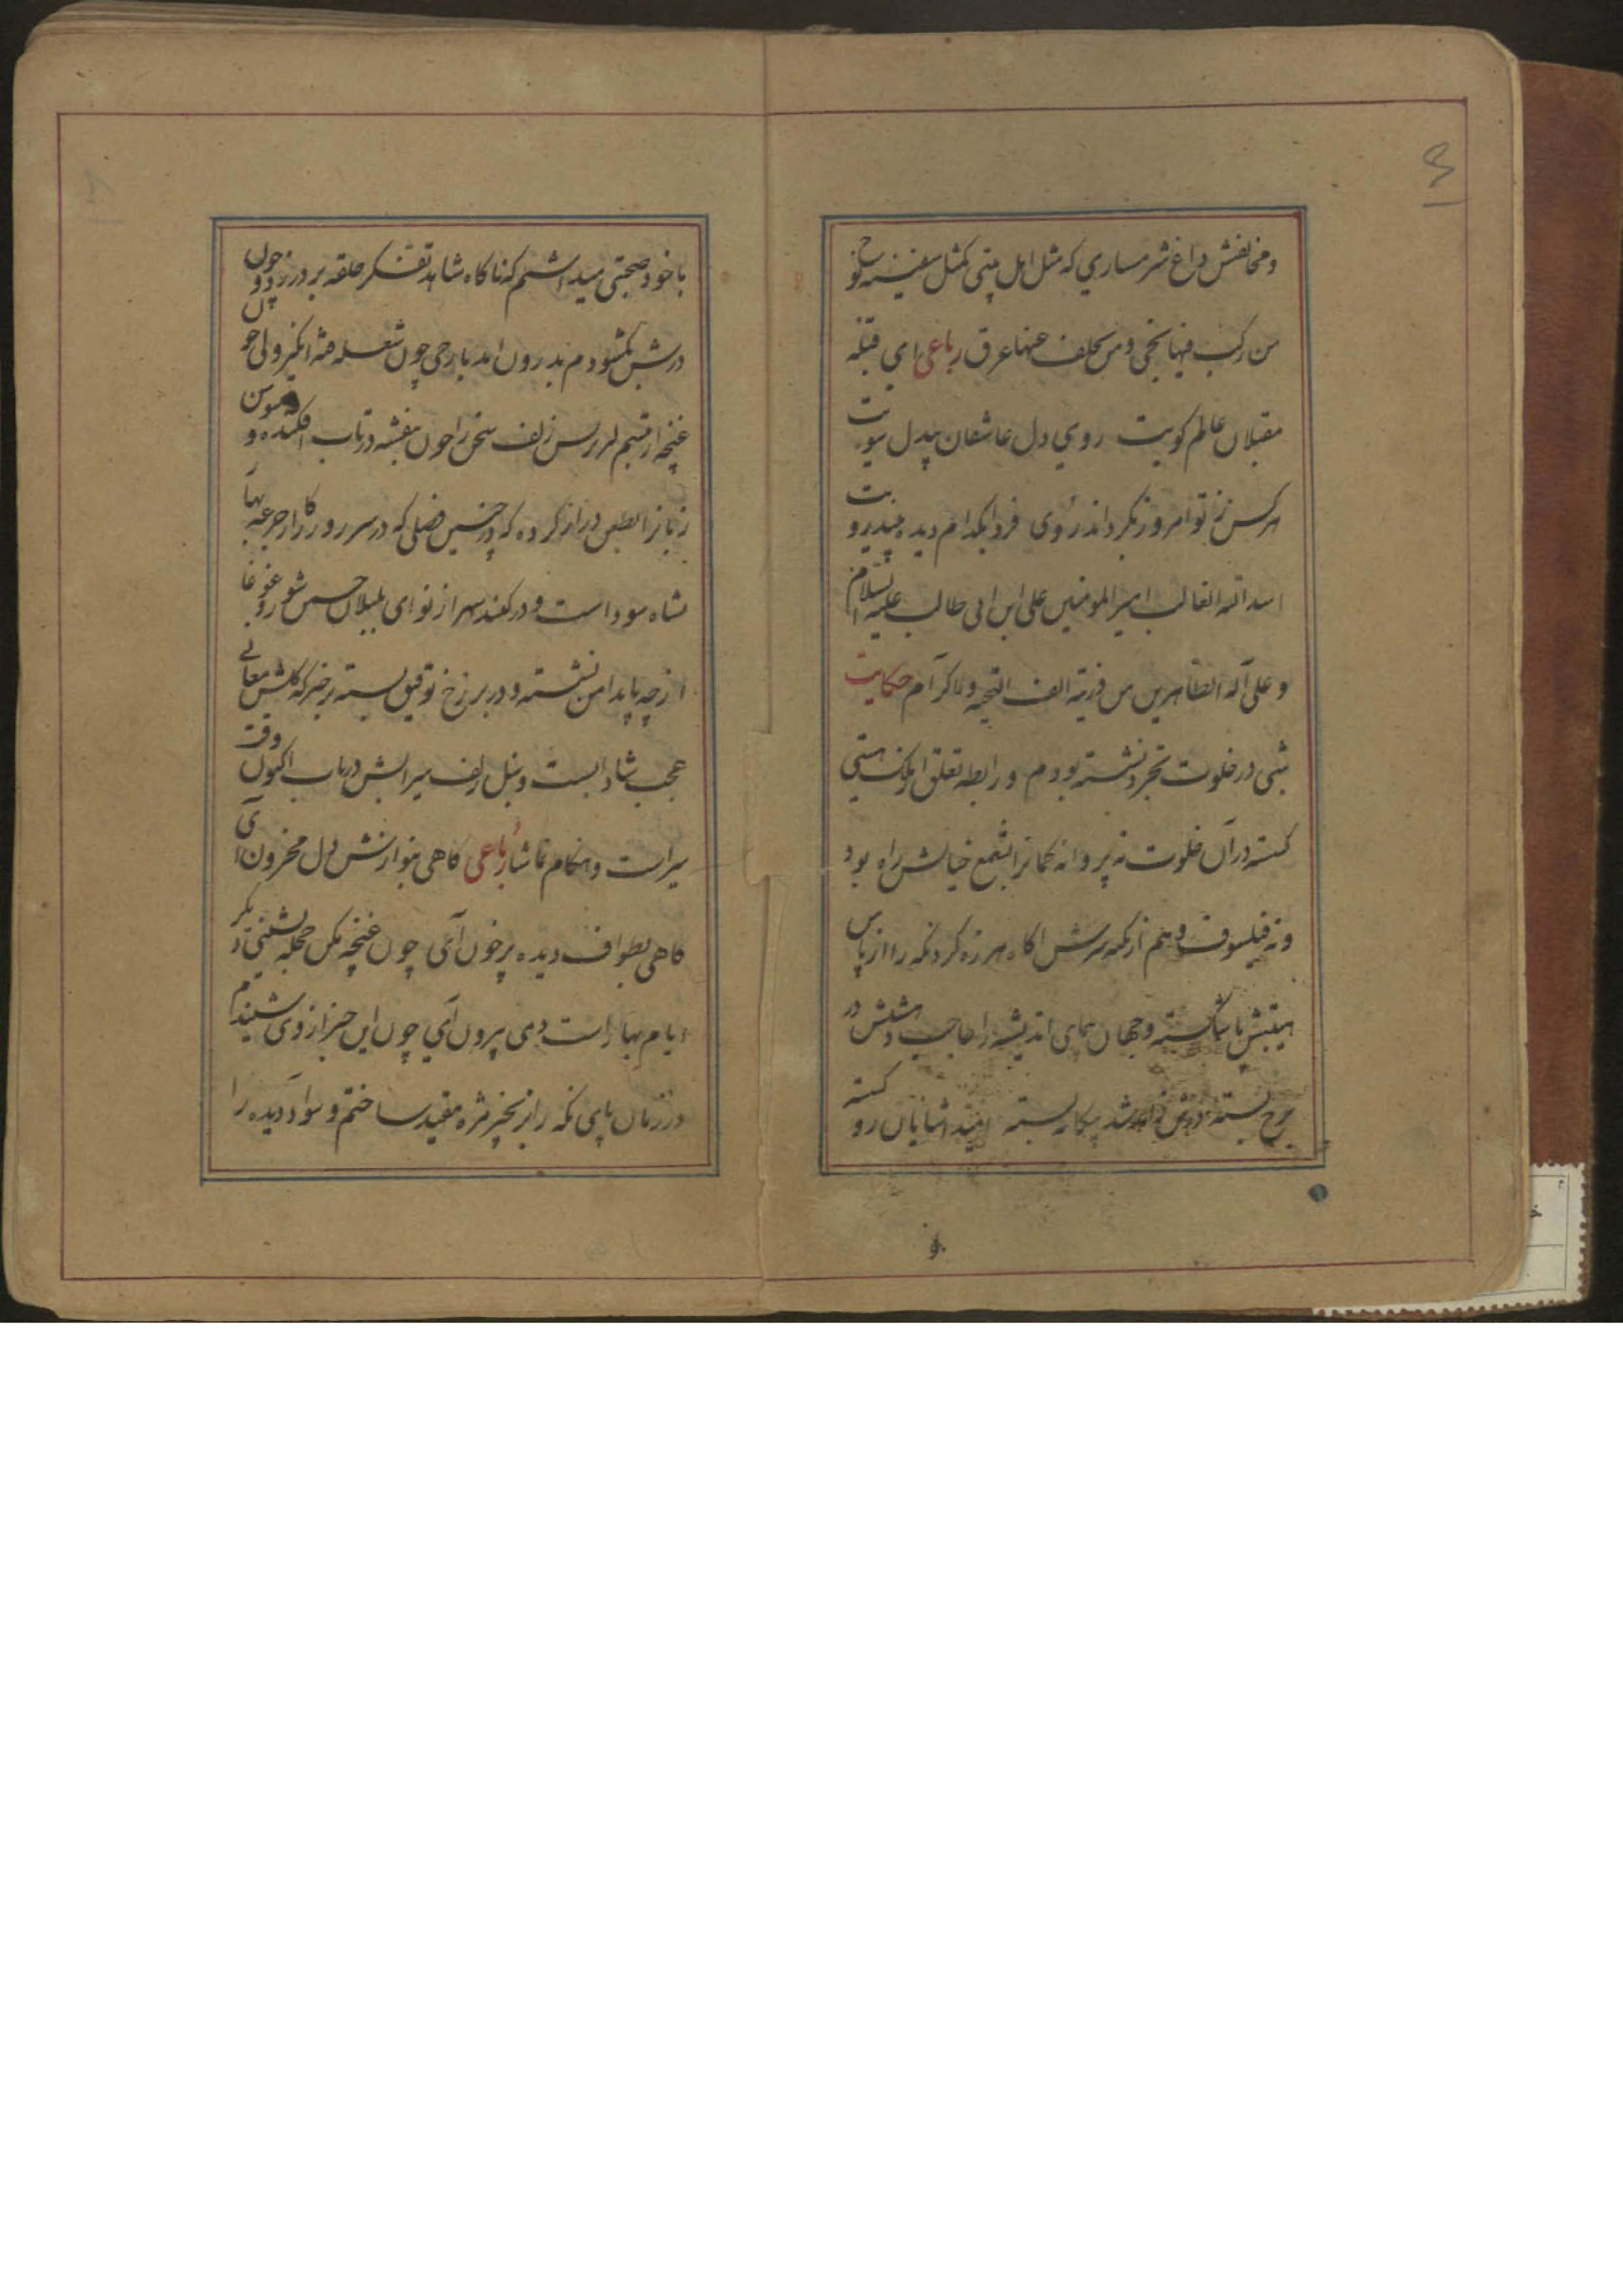 ومخالفش داغ شرمساری که مثل اهل بیتی کمثل سفینه نوح
من رکب فیها نجی ومن تخلف عنها غرق رباعی ای قبله
مقبلان عالم کویت روی دل عاشقان بیدل سویت
هر کس ز تو امروز بگرداند روی فردا بکدام دیده بیند رویت
اسد الله الغالب امیر المومنین علی ابن ابی طالب علیه السلام
وعلی آله الطاهرین من ذریته الف التحیه والاکرام حکایت
شبی در خلوت تجرد نشسته بودم ورابطه تعلق از ملک هستی
کسسته در آن خلوت نه پروانه کمانرا بشمع خیالش راه بود
ونه فیلسوف وهم از کمه سرش اکاه هرزه کرد نکه را از پاس
هیبتش پا شکسته وجهان نمای اندیشه را حاجب دهشتش در
برخ بسته بسته آشنایان رو کسسته
با خود صحبتی میداشتم که ناکاه شاهد تفکر حلقه بر در زد چون
درش بکشودم بدرون امد با رخی چون شعله فتنه انکیز ولی چون
غنچه از تبسم لبریس زلف سخن را چون بنفشه در تاب افکنده و چون سوسن
زبانرا بطعن دراز کرده که در چنین فصلی که در سر روزکار از جرعه بهار
نشاه سوداست و در کنبد سپهر از نوای بلبلان چمن شور و غوغا
از چه پا بدامن نشسته و در بر رخ توفیق بسته برخیز که کلشن معانی
عجب شادابست وسنبل زلف سیرابش در تاب اکنون وقت
سیر است وهنکام تماشا رباعی کاهی بنوازش دل محزون آی
کاهی بطواف دیده پرخون آی چون غنچه مکن حجله نشینی دیکر
ایام بهار است دمی بیرون آی چون این خبر از وی شنیدم
در زمان پای نکه را بزنجیر مژه مقید ساختم و سواد دیده را